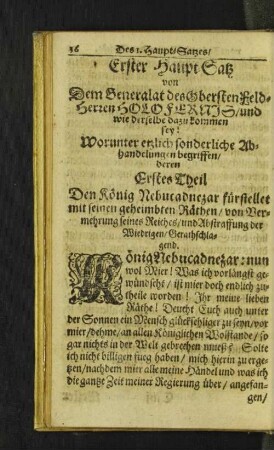 36 Des 1. Haupt/Satzes/
Erster Haupt Satz
von
Dem Generalat des Obersten Feld-
Herren HOLOFERNIS/und
wie derselbe dazu kommen
sey:
Worunter etzlich sonderliche Ab-
handelungen begriffen/
deren
Erstes Theil
Den König Nebucadnezar fürstellet
mit seinen geheimbten Räthen/von Ver-
mehrung seines Reiches/und Abstraffung der
Wiedrigen/Gerathschla-
gend.
König Nebucadnezar: nun
wol Mier! Was ich vorlängst ge-
wündscht/ ist mier doch endlich zu-
theile worden! Ihr meine lieben
Räthe! Deucht Euch auch unter
der Sonnen ein Mensch glückseliger zu seyn/vor
mier/dehme/an allen Königlichen Wolstande/so
gar nichts in der Welt gebrechen mueß? Solte
ich nicht billigen fueg haben/ mich hierin zu erge-
tzen/nachdem mier alle meine Händel und was ich
die gantze Zeit meiner Regierung über/ angefan-
gen/